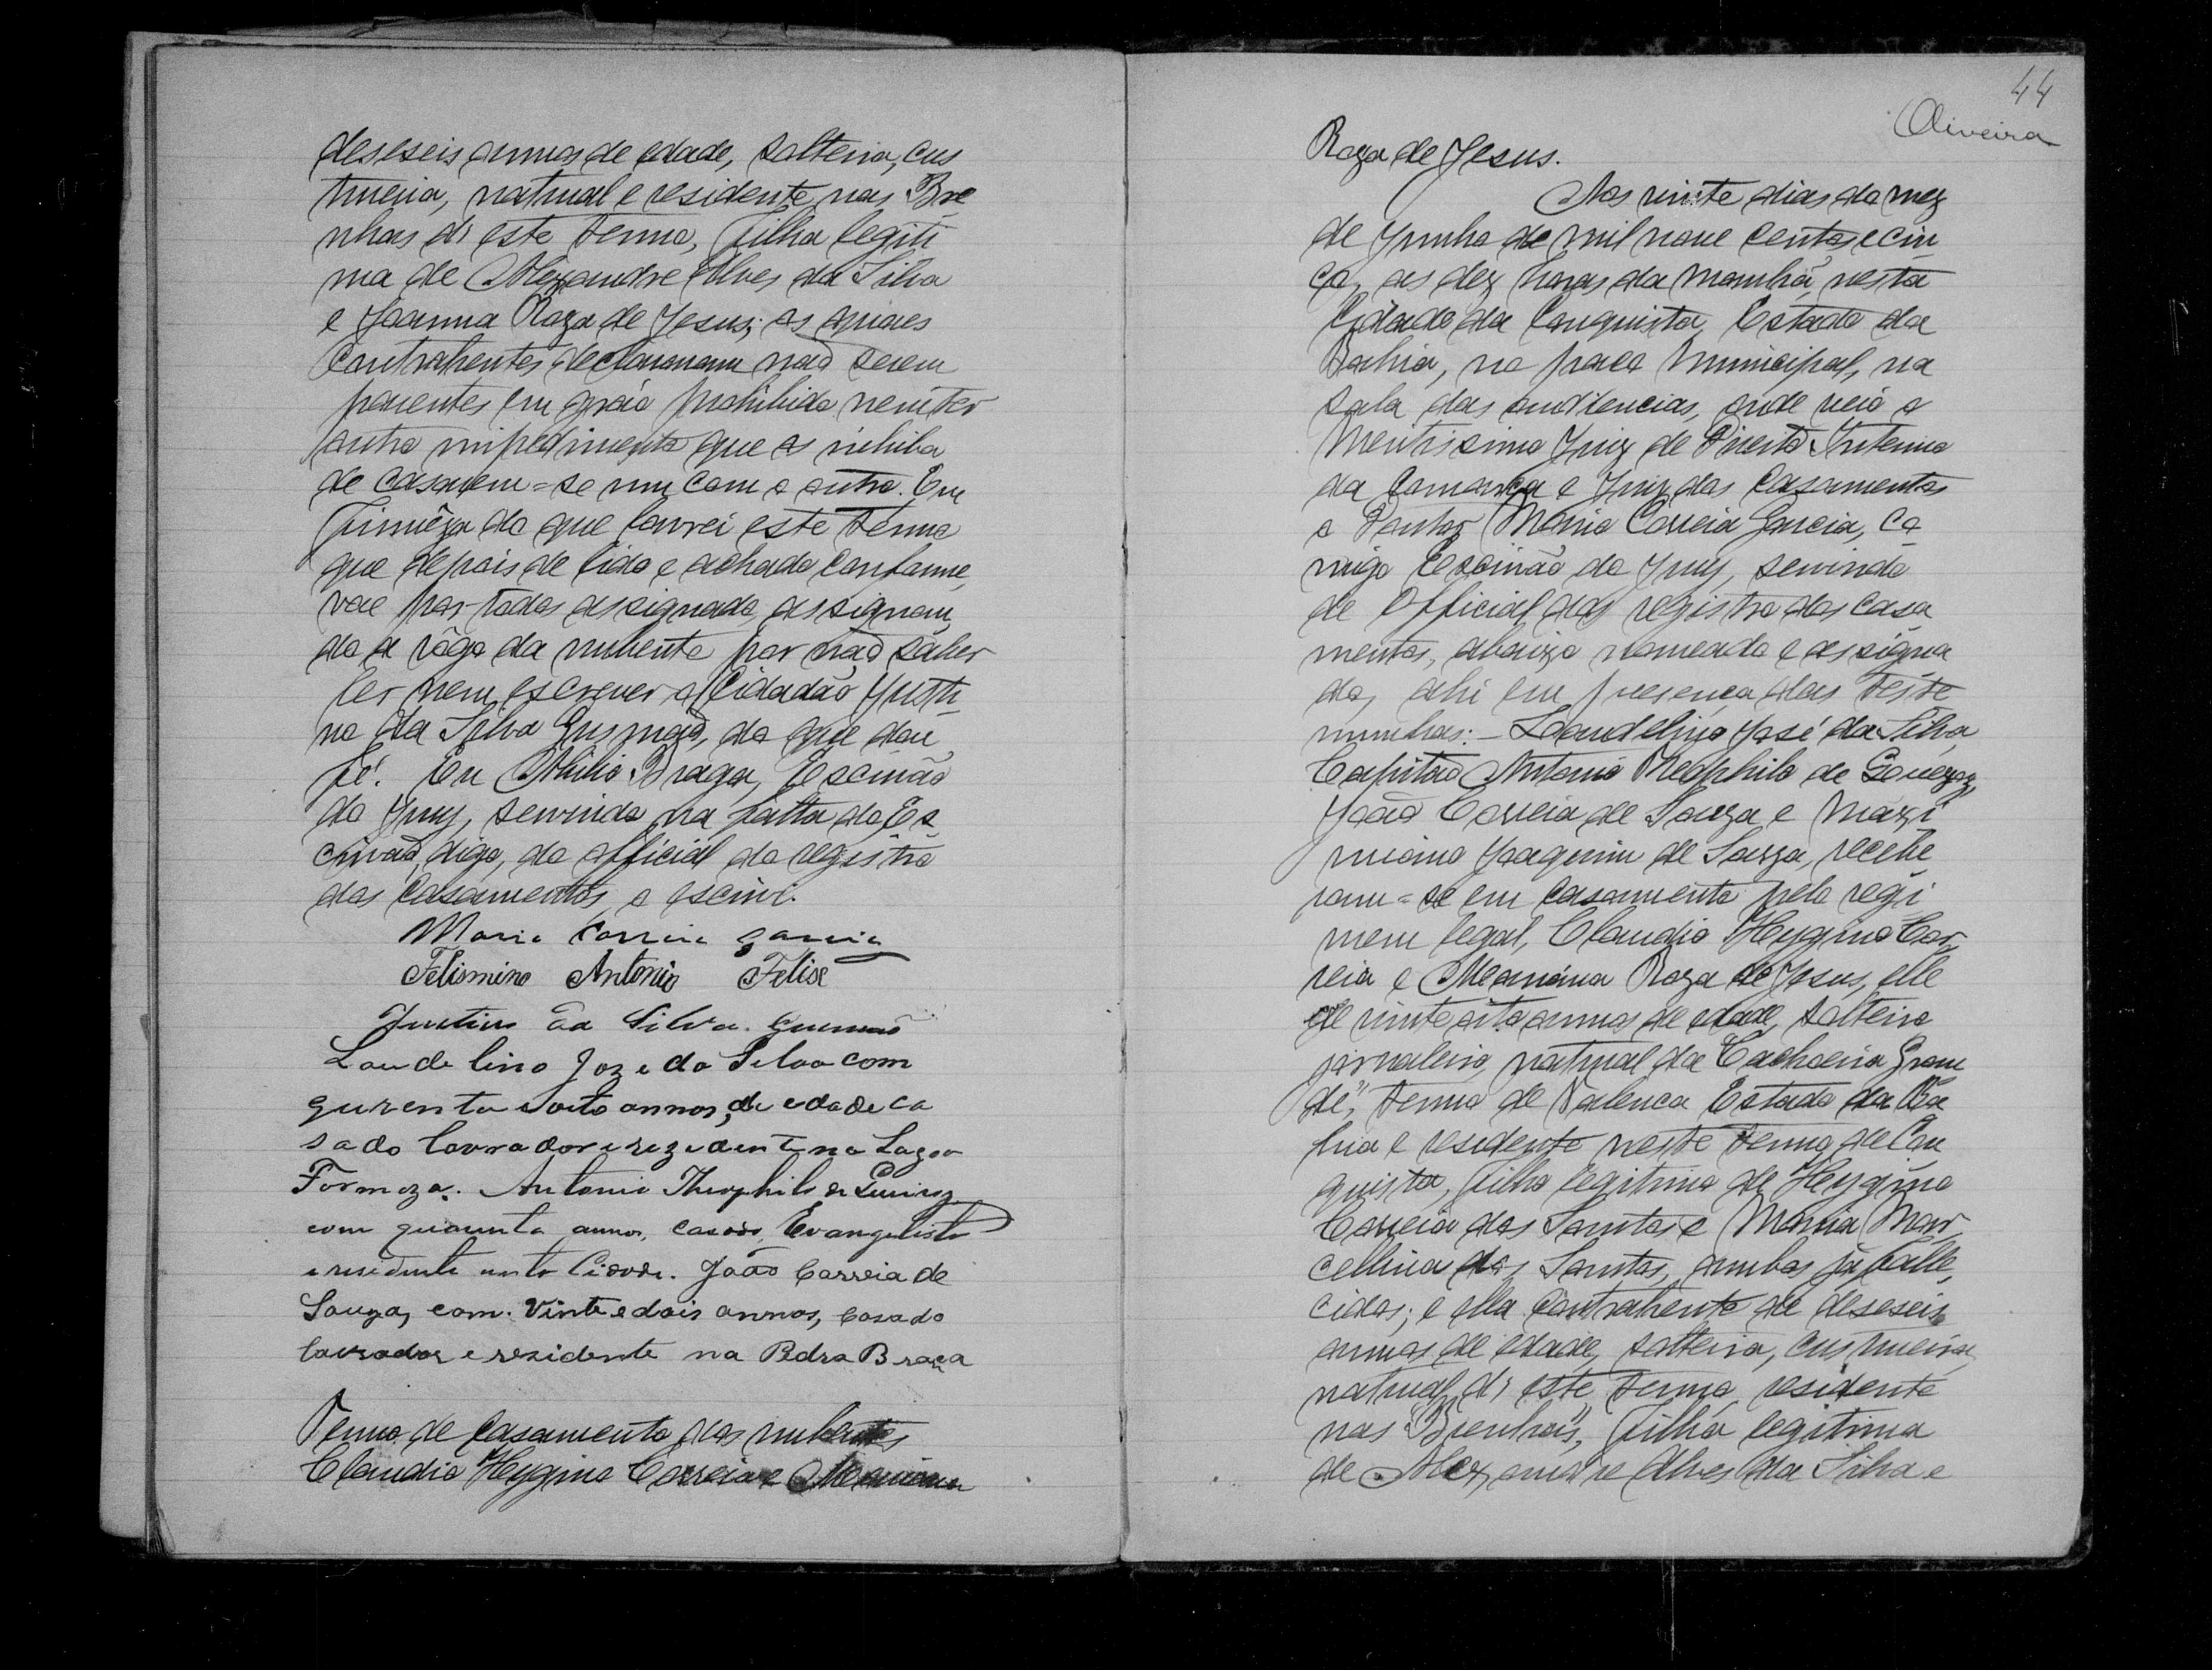 deseseis annos de edade, solteira, cus
tureira, natural e residente nas Bre
nhas d'este termo, filha legiti
ma de Alexandre Alves da Silva
e Joanna Roza de Jesus; os quaes
Contrahentes declararam não serem
parentes em gráo prohibido nem ter
outro impedimento que os inhiba
de casarem=se um com o outro. Em
firmêza do que lavrei este termo
que depois de lido e achado conforme,
vae por todos assignado, assignan
do a rôgo da nubente por não saber
ler nem escrever o Cidadão Justi
no da Silva Gusmão, do que dou
fé. Eu Abilio Braga, Escrivão
do Jury, servindo na falta do Es
crivão, digo, do official do registro
dos Casamentos, o escrivi.
Mario Correia Garcia
Felismino Antonio Felise
Justino da Silva Gusmão
Laudelino Joze da Silva com
qurenta e oito annos, de edade ca
sado lavrador e rezidente na Lagoa
Formoza. Antonio Theophilo de Queiroz
com quarenta annos, casado, Evangelista
e residente nesta Cidade. João Correia de
Souza, com. Vinte e dois annos, casado
lavrador e rezidente na Pedra Branca
Termo de Casamento dos nubentes
Claudio Hygino Correia e
44
Oliveira
Roza de Jesus.
Aos vinte dias do mez
de Junho de mil nove centos e cin
co, as dez horas da manhã, nesta
Cidade da Conquista, Estado da
Bahia, no paço Municipal, na
sala das audiencias, onde veio o
Meritissimo Juiz de Direito Interino
da Comarca e Juiz dos Casamentos
o Doutor Mario Correia Garcia, co
migo Escrivão do Jury, servindo
de Official dos registro dos casa
mentos, abaixo nomeado e assigna
do, ahi em presença das teste
munhas:- Laudelino José da Silva,
Capitão Antonio Theophilo de
João Correia de Souza e Maxi
miano Joaquim de Souza, recebe
ram=se em casamento pelo regi
mem legal, Claudio Hygino Cor
reia e Roza de Jesus, elle
de vinte oito annos de edade, solteiro
jornaleiro, natural da "Cachoeira Gran
de", termo de Valença Estado da Ba
hia e residente neste termo de Con
quista, filho legitimo de Hygino
Correia dos Santos e Maria Mar
cellina dos Santos, ambos já falle
cidos; e ella Contrahente de deseseis
annos de edade, solteira, custureira,
natural d'este termo, residente
nas "Brenhas", filha legitima
de Alexandre Alves da Silva e